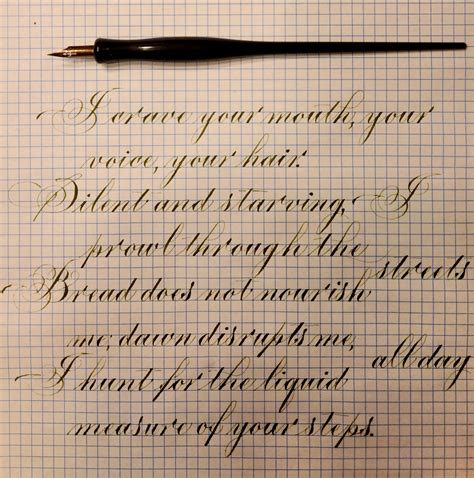 I crave your mouth, your
voice, your hair.
Silent and starving, I
prowl through the
streets
Bread does not nourish
me; dawn disrupts me,
all day
I hunt for the liquid
measure of your steps.